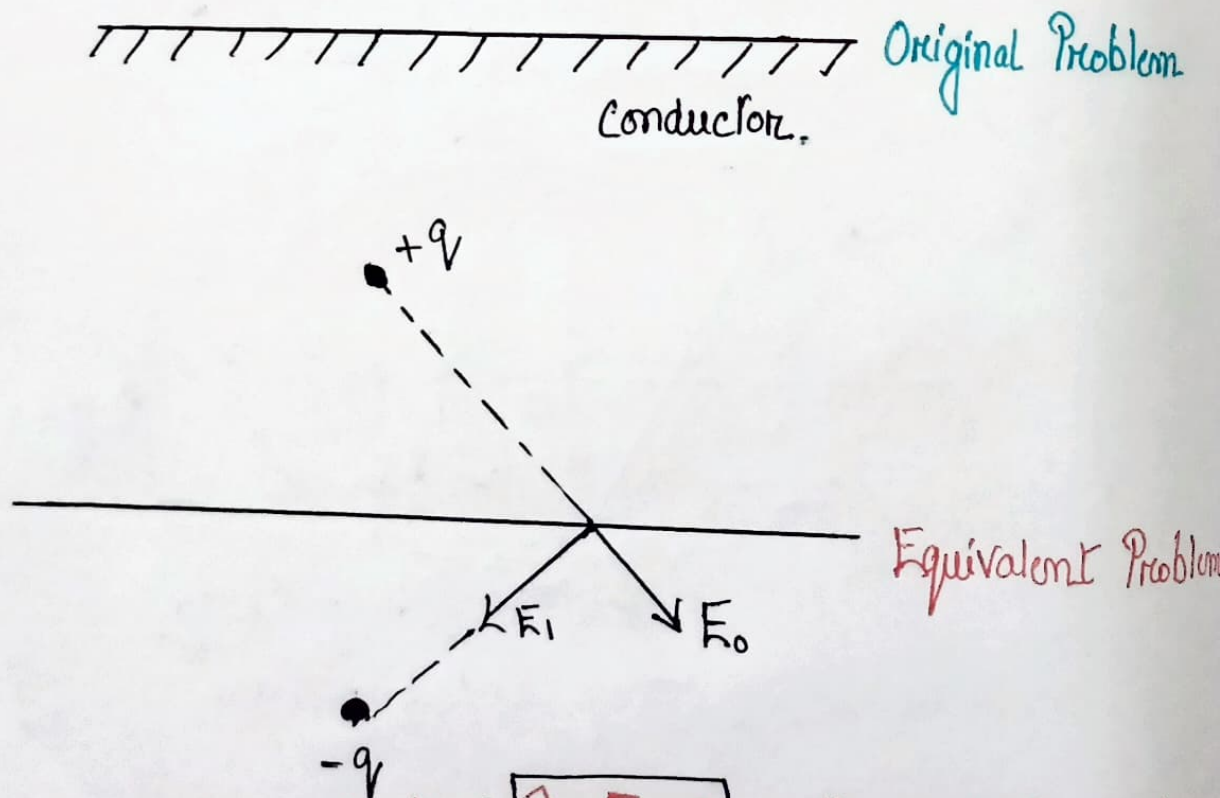 Original Problem
Conductor.
+q
Equivalent Problem
E₁
E₀
-q